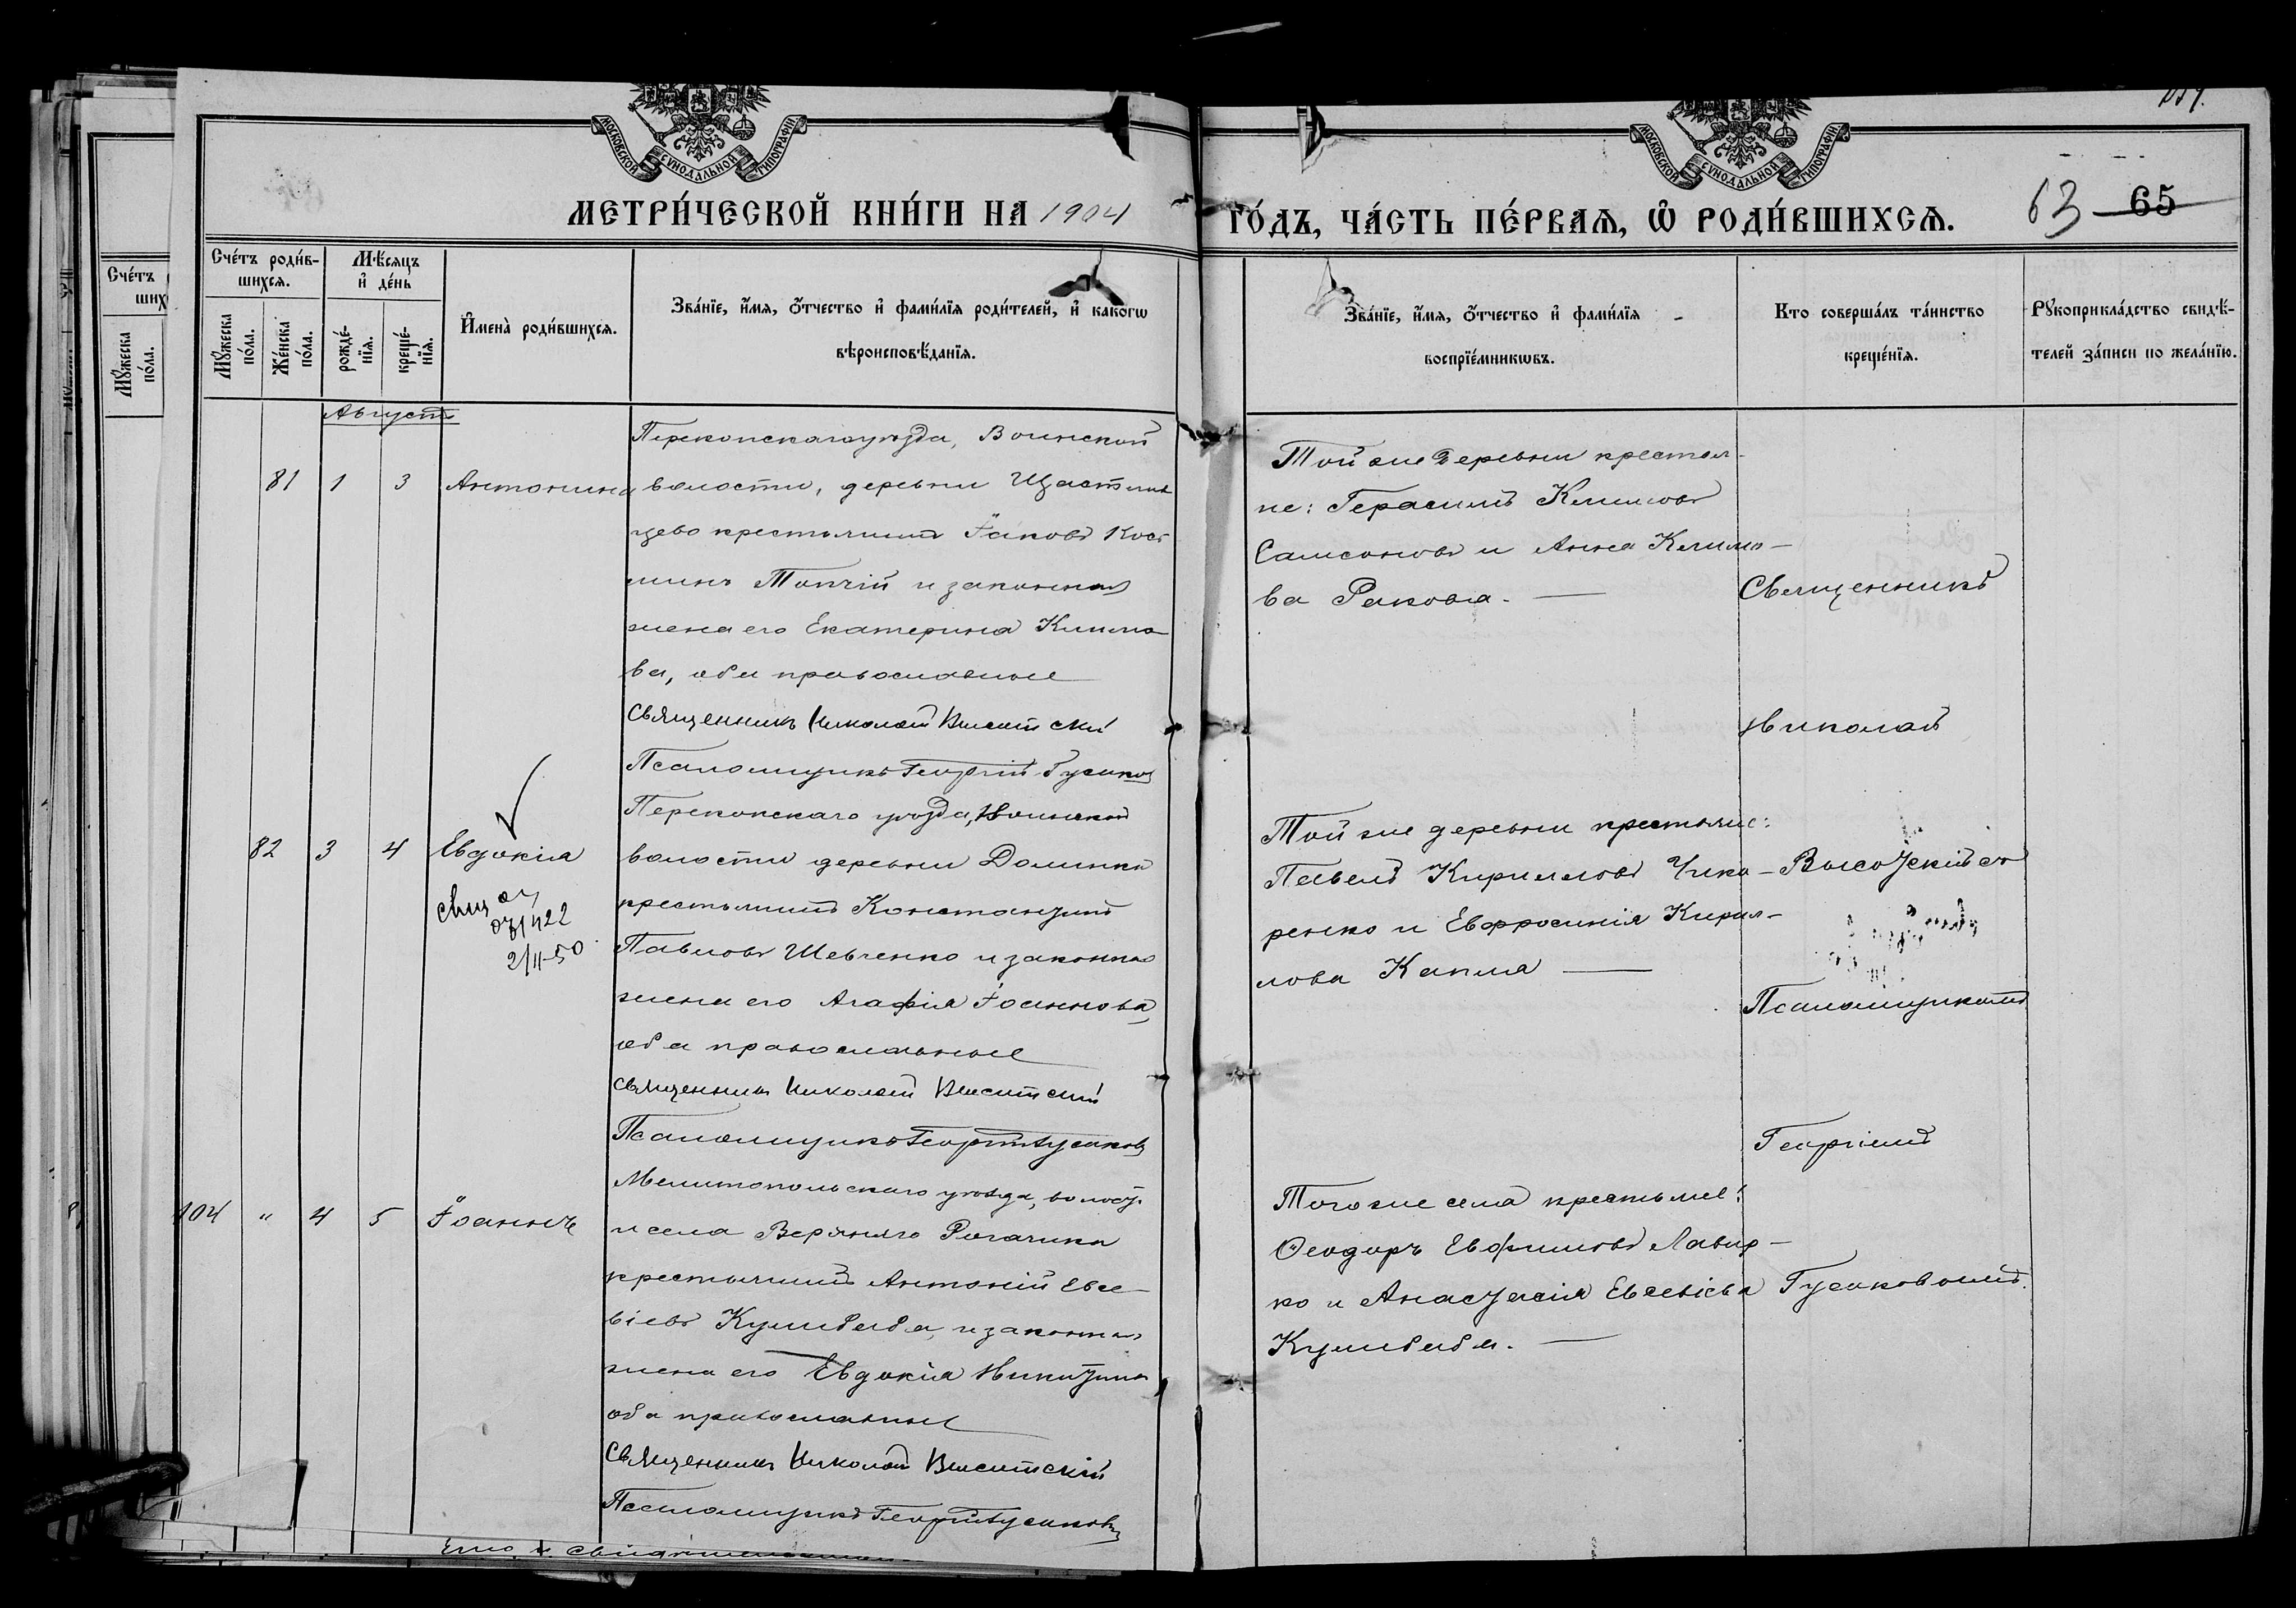 МОСКОВСКОЙ СѴНОДАЛЬНОЙ ТИПОГРАФІИ
МОСКОВСКОЙ СѴНОДАЛЬНОЙ ТИПОГРАФІИ
МЕТРИ́ЧЕСКОЙ КНИ́ГИ НА 1904
ГО́ДЪ, ЧА́СТЬ ПЕ́РВАѦ, Ѡ҆ РОДИ́ВШИХСѦ.
63 65
Сче́тъ роди́в-
шихсѧ.
Мꙋ́жеска по́ла.
Же́нска по́ла.
Мѣ́сѧцъ
и҆ де́нь
рожде́-
нїѧ.
креще́-
нїѧ.
И҆мена̀ роди́вшихсѧ.
Зва́нїе, и҆́мѧ, ѻ҆́тчество и҆ фами́лїѧ роди́телей, и҆ какогѡ
вѣроисповѣ́данїѧ.
Зва́нїе, и҆́мѧ, ѻ҆́тчество и҆ фами́лїѧ
воспрїе́мникѡвъ.
Кто соверша́лъ та́инство
креще́нїѧ.
Рꙋкоприкла́дство свидѣ́-
телей за́писи по жела́нїю.
Августъ
81 1 3 Антонина
Перекопскаго уѣзда, Воинской
волости, деревни Щастлив
цево крестьянинъ Іаковъ Кось
минъ Топчій и законная
жена его Екатерина Климо-
ва, оба православные
Священникъ Николай Высотскій
Псаломщикъ Георгій Гусаковъ
Той же деревни крестья-
не: Герасимъ Климовъ
Самсоновъ и Анна Климо-
ва Ракова.
Священникъ
Николай
Высотскій съ
Псаломщикомъ
Георгіемъ
Гусаковымъ.
82 3 4 Евдокія
2/II-50
Перекопскаго уѣзда, Воинской
волости деревни Долинки
крестьянинъ Константинъ
Павловъ Шевченко и законная
жена его Агафія Іоаннова,
оба православные
Священникъ Николай Высотскій
Псаломщикъ Георгій Гусаковъ
Той же деревни крестьяне:
Павелъ Кирилловъ Чико-
ренко и Евфросинія Кирил-
лова Капля
104 " 4 5 Іоаннъ
Мелитопольскаго уѣзда, волости
и села Верхняго Рогачика
крестьянинъ Антоній Евсе-
віевъ Кулибаба, и законная
жена его Евдокія Никитина
оба православные
Священникъ Николай Высотскій
Псаломщикъ Георгій Гусаковъ
Того же села крестьяне:
Ѳеодоръ Евфимовъ Лавир-
ко и Анастасія Евсевіева
Кулибаба.